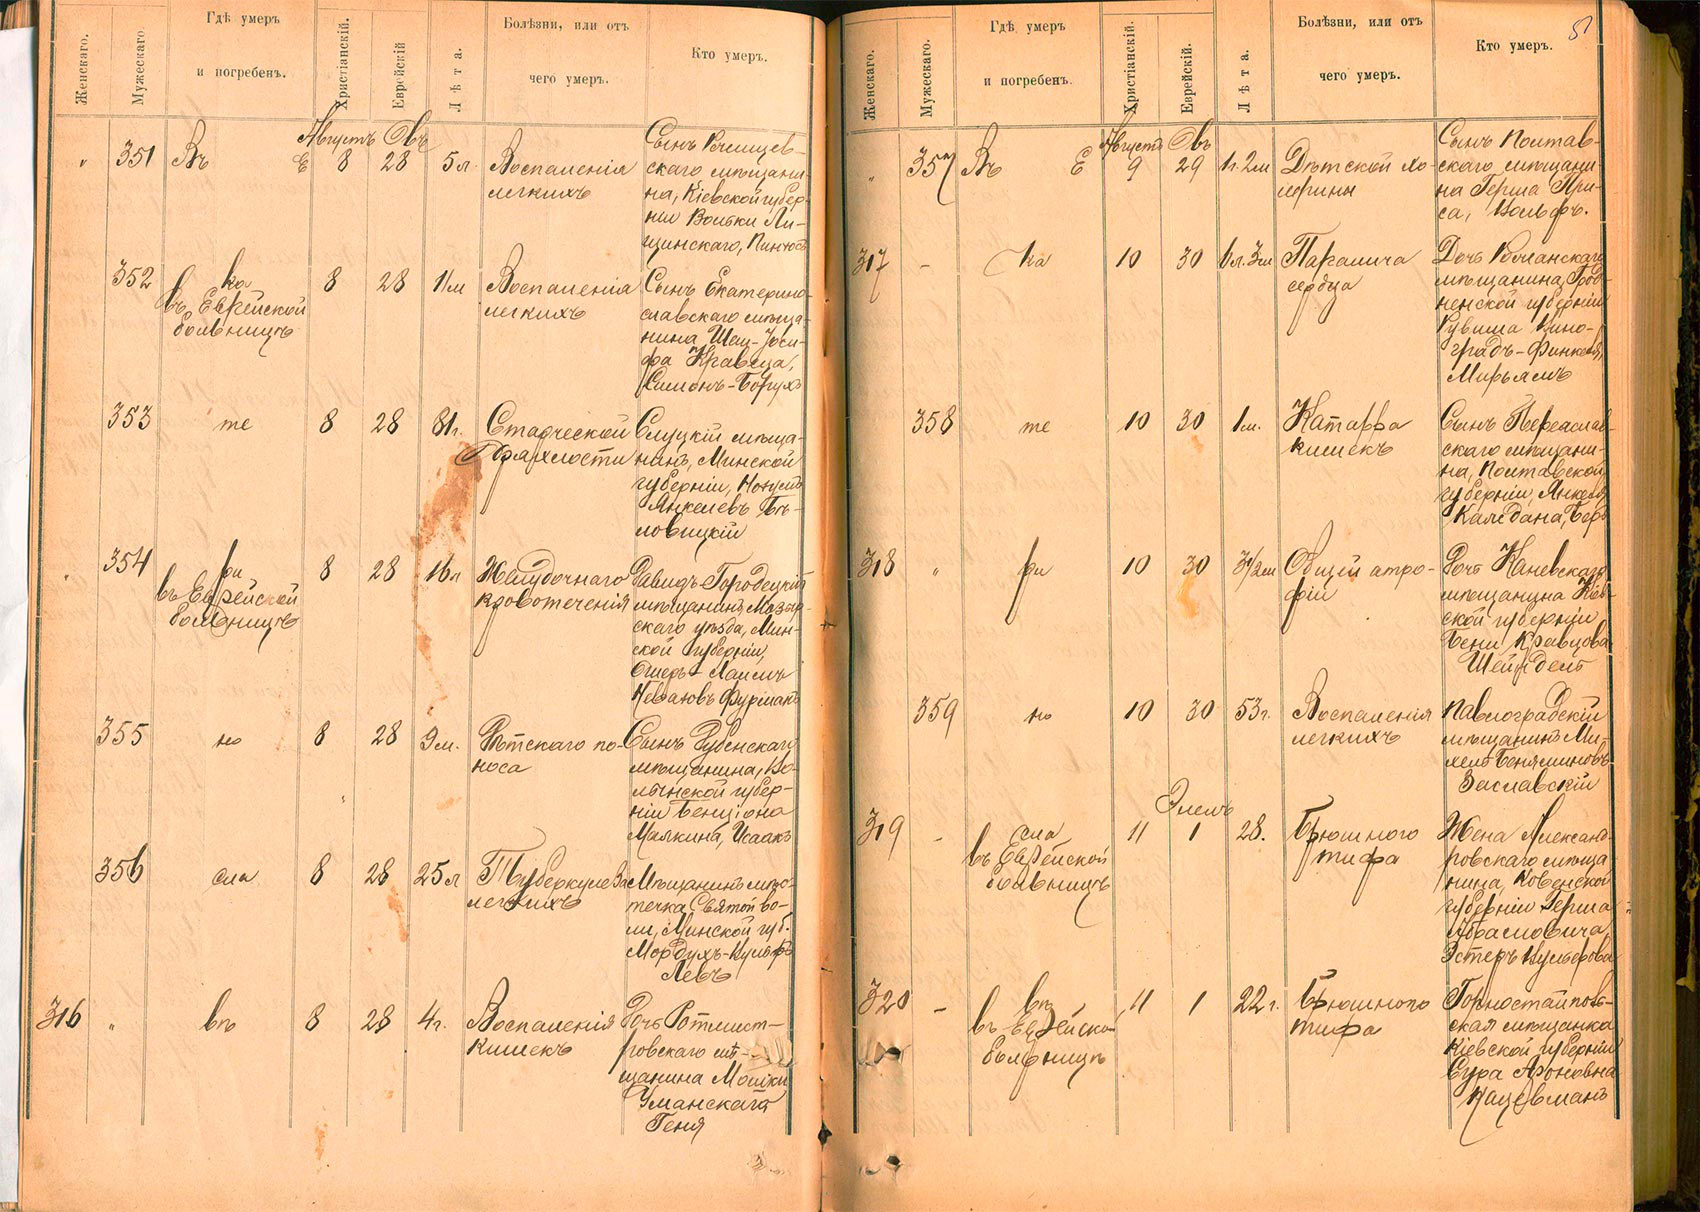 Женскаго.
Мужескаго.
Гдѣ умеръ
и погребенъ.
Христіанскій.
Еврейскій
Лѣта.
Болѣзни, или отъ
чего умеръ.
Кто умеръ.
Августъ Овъ
" 351 Въ Е 8 28 5 л Воспаленія
легкихъ
Сынъ
скаго мѣщани-
на, Кіевской губер-
ніи Вольки Ли-
щинскаго, Пинхосъ
352 ка 8 28 11 м Воспаленія
въ Еврейской
больницѣ
легкихъ
Сынъ Екатерино-
славскаго мѣща-
нина Шеи-Іоси-
фа Кравеца,
Симонъ-Борухъ
353 те 8 28 81 г. Старческой
дряхлости
Слуцкій мѣща-
нинъ, Минской
губерніи,
Янкелевъ Бѣ-
ловицкій
354 ри 8 28 16 л Желудочнаго
въ Еврейской
больницѣ
кровотеченія
Давидъ-Городецкій
мѣщанинъ Мозыр-
скаго уѣзда, Мин-
ской губерніи,
Фурманъ
355 но 8 28 9 м. Дѣтскаго по-
носа
Сынъ Дубенскаго
мѣщанина, Во-
лынской губер-
ніи Бенціона
Малкина, Исаакъ
356 сла 8 28 25 л Туберкулеза
легкихъ
Мѣщанинъ мѣс-
течка Святой во-
ли, Минской губ.
Мордухъ-
Левъ
316 " въ 8 28 4 г. Воспаленія
кишекъ
Дочь Ротмист-
ровскаго мѣ-
щанина Мошки
Уманскаго,
Геня
51
Женскаго.
Мужескаго.
Гдѣ умеръ
и погребенъ.
Христіанскій.
Еврейскій.
Лѣта.
Болѣзни, или отъ
чего умеръ.
Кто умеръ.
Августъ Овъ
" 357 Въ Е 9 29 1 г. 2 м Дѣтской хо-
лерины
Сынъ Полтав-
скаго мѣщани-
на Герша При-
са, Вольфъ.
317 - ка 10 30 6 л. 3 м Паралича
сердца
Дочь
мѣщанина, Грод-
ненской губерніи
Рувина Вино-
градъ-Финкеля,
Мирьямъ
358 те 10 30 1 м. Катарра
кишекъ
Сынъ Переяслав-
скаго мѣщани-
на, Полтавской
губерніи, Янкеля
Калдана, Беръ
318 " ри 10 30 3 1/2 м Общей атро-
фіи
Дочь Каневскаго
мѣщанина Кіев-
ской губерніи
Бени Кравцова
Шейндель
359 но 10 30 53 г. Воспаленія
легкихъ
Павлоградскій
мѣщанинъ Ми-
хель Беняминовъ
Заславскій
Элелъ
319 - сла 11 1 28. Брюшного
въ Еврейской
больницѣ
тифа
Жена Александ-
ровскаго мѣща-
нина, Ковенской
губерніи Герша
Абрамовича,
Эстеръ
320 - въ 11 1 22 г. Брюшного
въ Еврейской
больницѣ
тифа
Горностайполь-
ская мѣщанка
Кіевской губерніи
Сура Ароновна
Кацевманъ